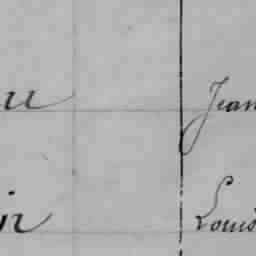 u Jean
ir Louis